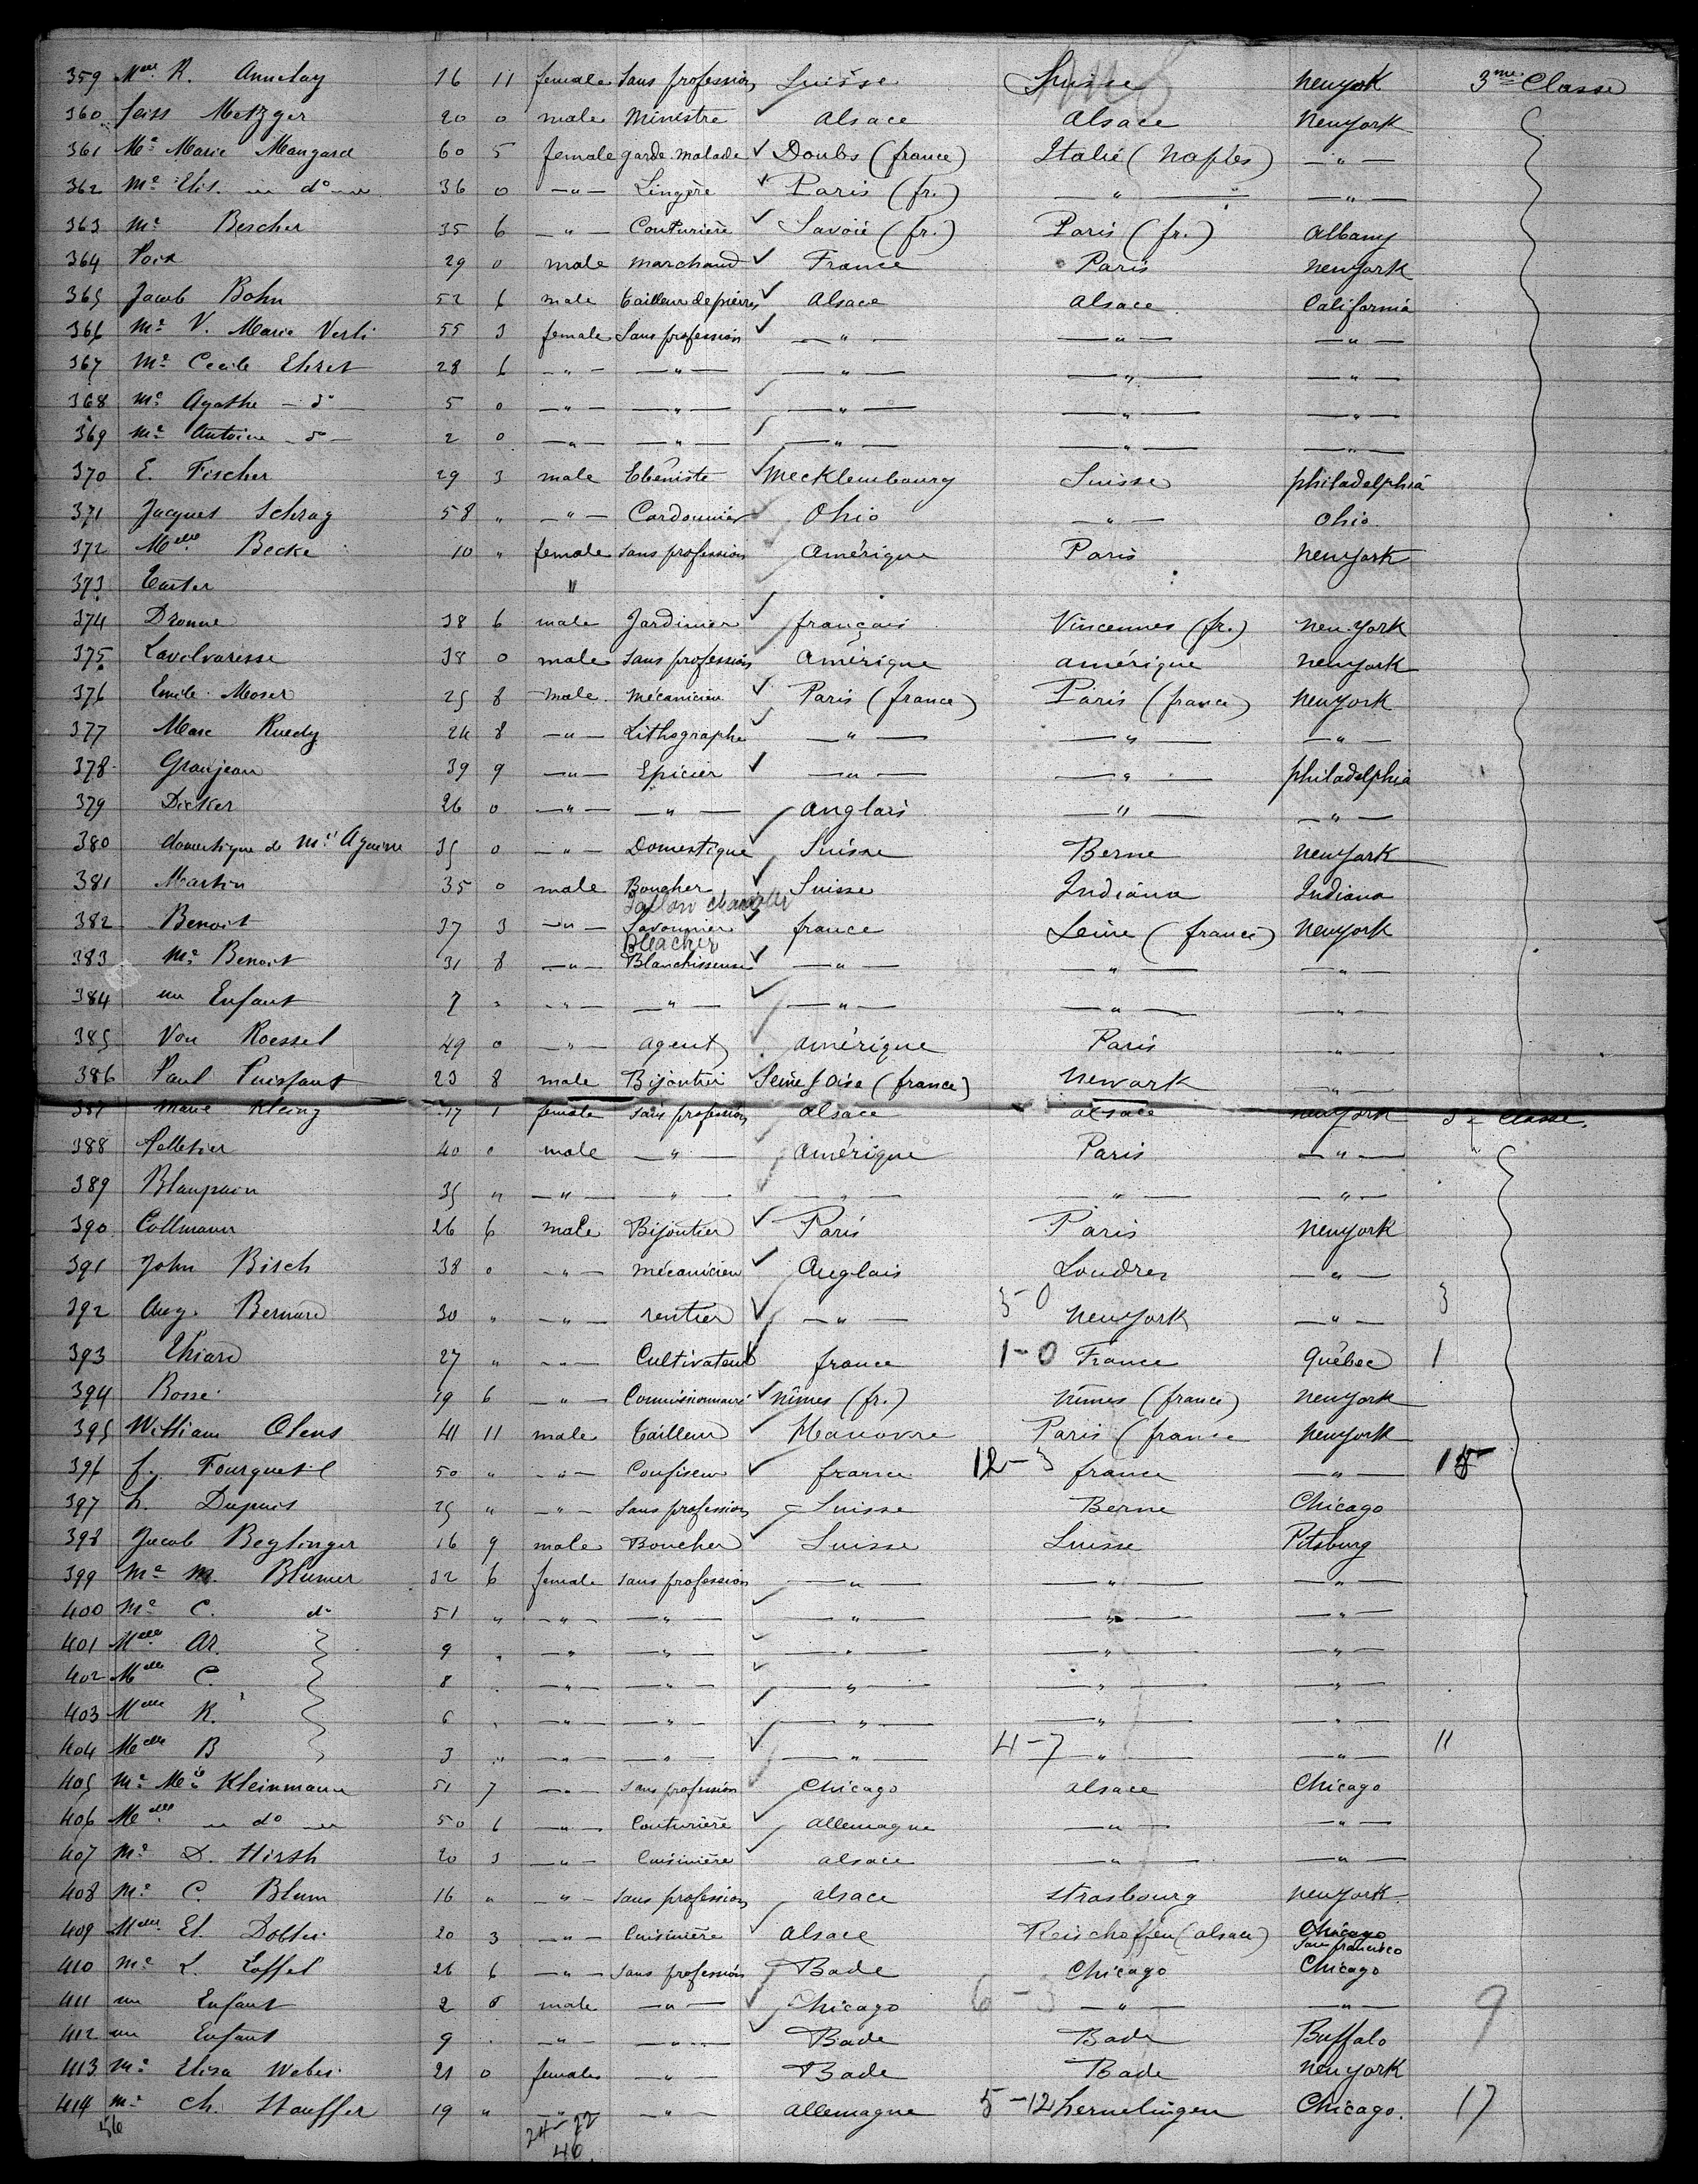 359 Melle R. Annelay 16 11 female Sans profession Suisse Suisse Newyork 3me Classe
360 Metzger 20 0 male Ministre ✓ Alsace Alsace Newyork
361 Me Marie Mangard 60 5 female garde-malade ✓ Doubs (france) Italie (Naples) —"—
362 Me Elis. —do— 36 0 —"— Lingère ✓ Paris (fr.) —"— —"—
363 Me Bescher 35 6 —"— Couturière ✓ Savoie (fr.) Paris (fr.) Albany
364 Poix 29 0 male Marchand ✓ France Paris Newyork
365 Jacob Bohn 52 6 male tailleur de pierres ✓ Alsace Alsace California
366 Me V. Marie Verli 55 3 female Sans profession ✓ —"— —"— —"—
367 Me Cecile Ehret 28 6 —"— —"— —"— —"— —"—
368 Me Agathe —do— 5 0 —"— —"— ✓ —"— —"— —"—
369 Me Antoine —do— 2 0 —"— —"— ✓ —"— —"— —"—
370 E. Fischer 29 3 male Ebéniste ✓ Mecklembourg Suisse philadelphia
371 Jacques Schrag 58 " —"— Cordonnier ✓ Ohio —"— Ohio
372 Melle Becke 10 " female sans profession Amérique Paris Newyork
373 Carter "
374 Dronne 38 6 male Jardinier ✓ français Vincennes (fr.) New-york
375 Lavelvaresse 38 0 male sans profession Amérique amérique Newyork
376 Emile Moser 25 8 male Mécanicien ✓ Paris (france) Paris (france) Newyork
377 Marc Ruedy 24 8 —"— Lithographe ✓ —"— —"— —"—
378 Granjean 39 9 —"— Epicier ✓ —"— —"— philadelphia
379 Dicker 26 0 —"— —"— ✓ Anglais —"— —"—
380 domestique de Mr Aguirre 35 0 —"— Domestique ✓ Suisse Berne Newyork
381 Martin 35 0 male Boucher ✓ Suisse Indiana Indiana
382 Benoit 37 3 —"— Savonnier ✓ france Seine (france) Newyork
Bleacher
383 Me Benoit 31 8 —"— Blanchisseuse ✓ —"— —"— —"—
384 un Enfant 7 " —"— —"— ✓ —"— —"— —"—
385 Von Roessel 49 0 —"— Agent ✓ Amérique Paris —"—
386 Paul Puissant 23 8 male Bijoutier ✓ Seine & Oise (france) Newark —"—
387 Marie Kleinz 17 1 female sans profession Alsace alsace newyork 3e Classe
388 Pelletier 40 0 male —"— ✓ Amérique Paris —"— "
389 Blanpain 35 " —"— —"— ✓ —"— —"— —"—
390 Collmann 26 6 male Bijoutier ✓ Paris Paris Newyork
391 John Bisch 38 0 —"— Mécanicien ✓ Anglais Londres —"—
392 Aug. Bernard 30 " —"— rentier ✓ —"— 3-0 Newyork —"— 3
393 Thiard 27 " —"— Cultivateur ✓ france 1-0 France Québec 1
394 Bosse 19 6 —"— Commissionnaire ✓ Nîmes (fr.) Nîmes (france) Newyork
395 William Olens 41 11 male Tailleur ✓ Hanovre Paris (france Newyork
396 f. Fourquet 50 " —"— Confiseur ✓ france 12-3 france —"— 15
397 L. Dupuis 25 " —"— Sans profession Suisse Berne Chicago
398 Jacob Beglinger 16 9 male Boucher ✓ Suisse Suisse Pitsburg
399 Me M. Blumer 32 6 female sans profession —"— —"— —"—
400 Me C. do 51 " —"— —"— ✓ —"— —"— —"—
401 Melle Ar. 9 " —"— —"— ✓ —"— —"— —"—
402 Melle C. 8 " —"— —"— ✓ —"— —"— —"—
403 Melle R. 6 " —"— —"— ✓ —"— —"— —"—
404 Melle B 3 " —"— —"— ✓ —"— 4-7 —"— —"— 11
405 Me Kleinmann 51 7 —"— sans profession ✓ Chicago alsace Chicago
406 Melle —do— 50 6 —"— Couturière ✓ Allemagne —"— —"—
407 Me D. Hirsh 20 3 —"— Cuisinière ✓ alsace —"— —"—
408 Me C. Blum 16 " —"— Sans profession alsace Strasbourg newyork
409 Melle El. Dobler 20 3 —"— Cuisinière ✓ alsace Reischoffen (alsace) Chicago
San francisco
410 Me L. Loffel 26 6 —"— Sans profession Bade Chicago Chicago
411 un Enfant 2 6 male —"— ✓ Chicago 6-3 —"— —"— 9
412 un Enfant 9 " —"— —"— ✓ Bade Bade Buffalo
413 Me Elisa Weber 21 0 female —"— Bade Bade New york
414 Me Ch. Stauffer 19 " —"— —"— Allemagne 5-12 Chicago. 17
56 24-22
46